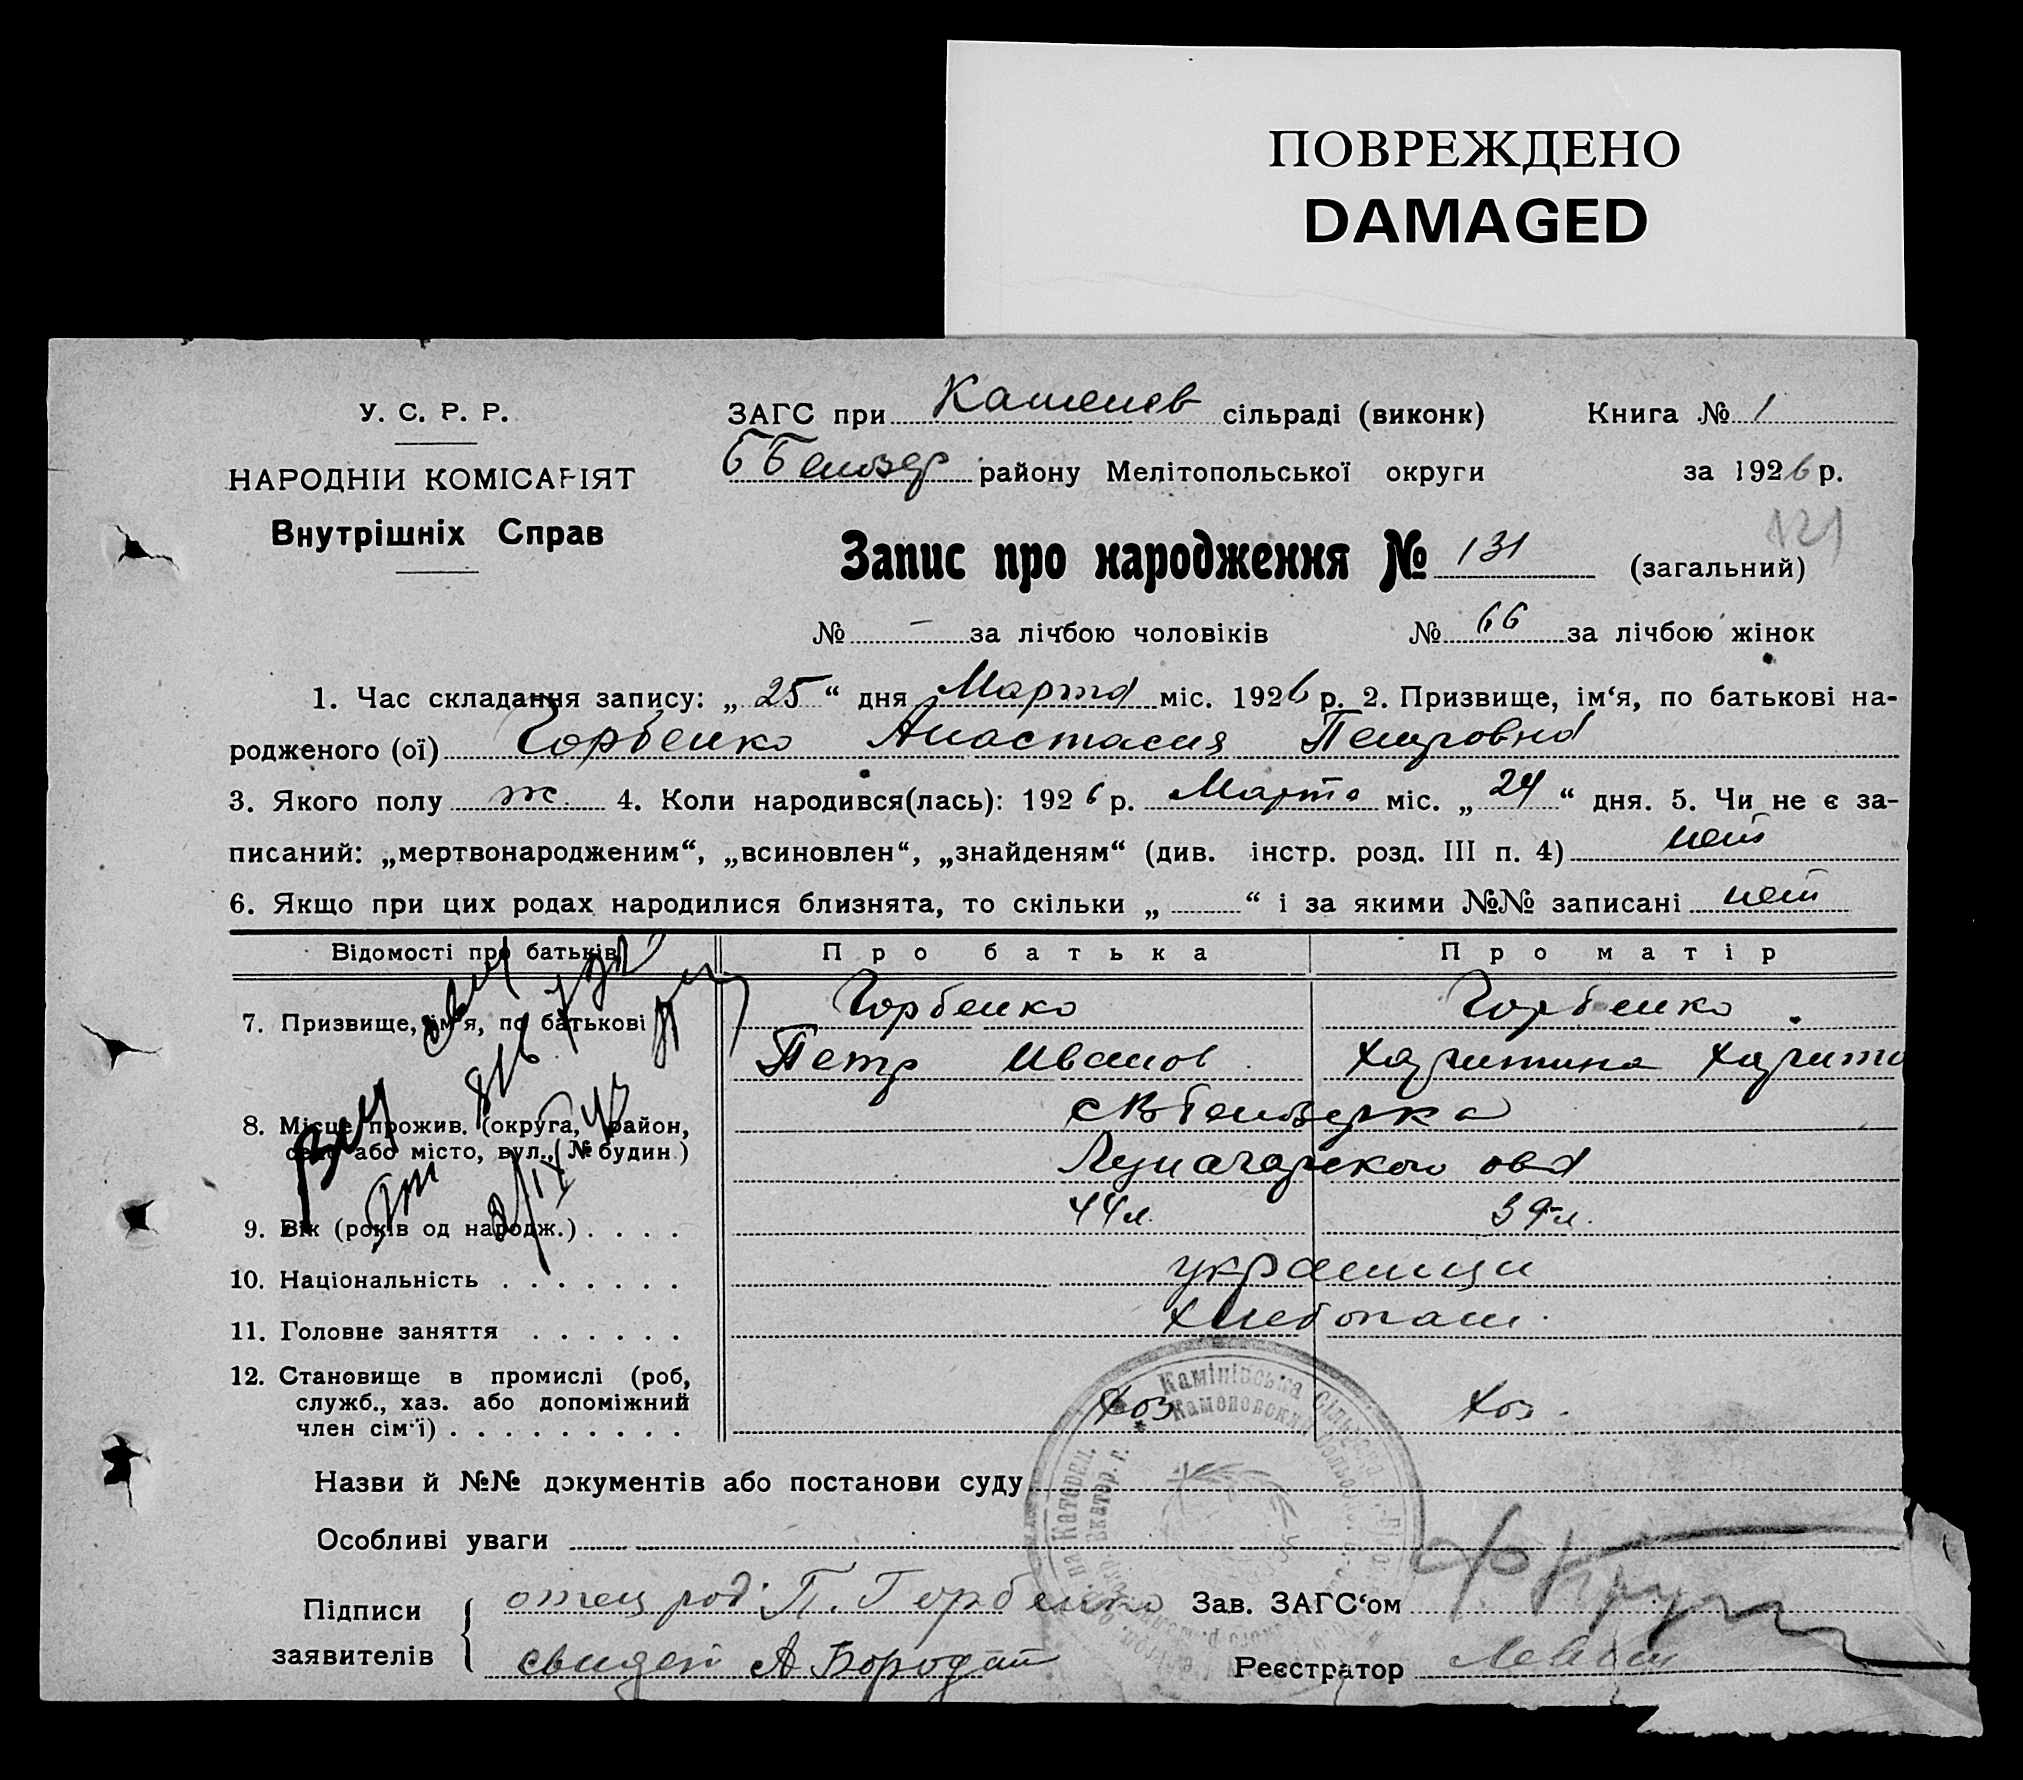 ПОВРЕЖДЕНО
DAMAGED
У. С. Р. Р.
НАРОДНІИ КОМІСАРІЯТ
Внутрішніх Справ
ЗАГС при Каменев сільраді (виконк) Книга № 1
району Мелітопольської округи за 1926 р.
121
Запис про народження № 131 (загальний)
№ – за лічбою чоловіків № 66 за лічбою жінок
1. Час складання запису: „ 25 “ дня Марта міс. 1926 р. 2. Призвище, ім‘я, по батькові на-
родженого (ої) Горбенко Анастасия Петровна
3. Якого полу ж. 4. Коли народився(лась): 1926 р. Марта міс. „ 24 “ дня. 5. Чи не є за-
писаний: „мертвонародженим“, „всиновлен“, „знайденям“ (див. інстр. розд. III п. 4) нет
6. Якщо при цих родах народилися близнята, то скільки „ “ і за якими №№ записані нет
Відомості про батьків Про батька Про матір
7. Призвище, ім‘я, по батькові Горбенко Горбенко
Петр Иванов Харитина Харито
8. Місце прожив. (округа, район,
село або місто, вул., № будин)
9. Вік (років од народж.) . . . . 44 л. 39 л.
10. Національність . . . . . . . украинци
11. Головне заняття . . . . . . хлебопаш.
12. Становище в промислі (роб,
служб., хаз. або допоміжний
член сім‘ї) . . . . . . . . . Хоз Хоз.
Камінівська Сільська
Назви й №№ документів або постанови суду
Особливі уваги
Підписи
заявителів
отец род. П. Горбенко Зав. ЗАГС‘ом
свидет А Бородат Реєстратор